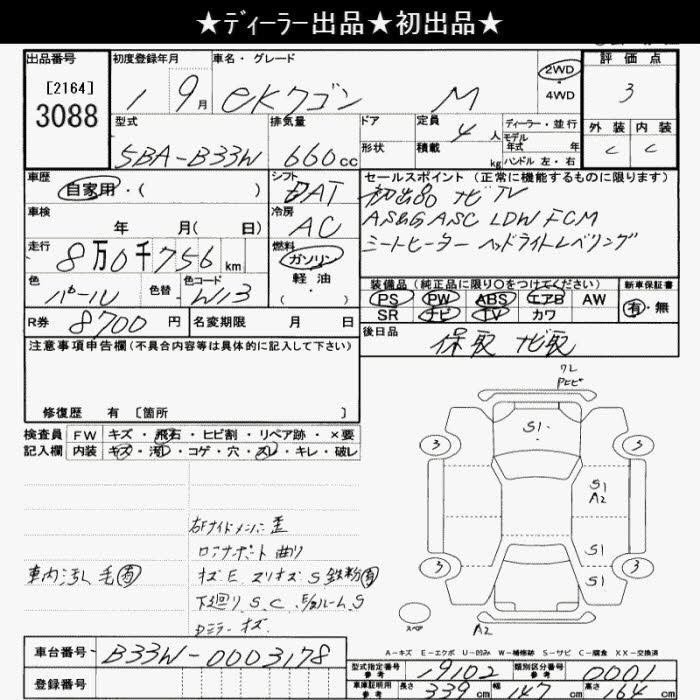 ★ディーラー出品★初出品★
出品番号 初度登録年月 車名・グレード 評価点
[2164] 2WD
3088 1 9月 eKワゴン M ・4WD 3
型式 排気量 ドア 定員 4人 ディーラー・並行 外装 内装
モデル年式 年
5BA-B33W 660cc 形状 積載 kg ハンドル 左・右 C C
車歴 シフト セールスポイント(正常に機能するものに限ります)
自家用・( ) DAT 初出品 ナビ TV
車検 冷房 ASG ASC LDW FCM
年 月( 日) AC
シートヒーター ヘッドライトレベリング
走行 燃料
8万0千756km ガソリン
軽油
・( )
色 色替 色コード 装備品(純正品に限り○をつけてください) 新車保証書
パール W13 PS PW ABS エアB AW 有・無
SR ナビ TV カワ
R券 8700円 名変期限 月 日 後日品
保取 ナビ取
注意事項申告欄(不具合内容等は具体的に記入して下さい)
修復歴 有 [箇所 ]
検査員 FW キズ・飛石・ヒビ割・リペア跡・×要
記入欄 内装 キズ・汚れ・コゲ・穴・スレ・キレ・破レ
ワレ
S1
3 3
S1
A2
S1
3 3
S1
スペア
A2
車内汚れ 毛有
曲り
キズE スリキズS 鉄粉有
下廻りS.C
Dミラーキズ
A-キズ E-エクボ U-凹み W-補修跡 S-サビ C-腐食 XX-交換済
車台番号 B33W-0003178
登録番号
型式指定番号 参考 19102 類別区分番号 参考 0001
車庫証明用 参考 長さ 339cm 幅 147cm 高さ 164cm